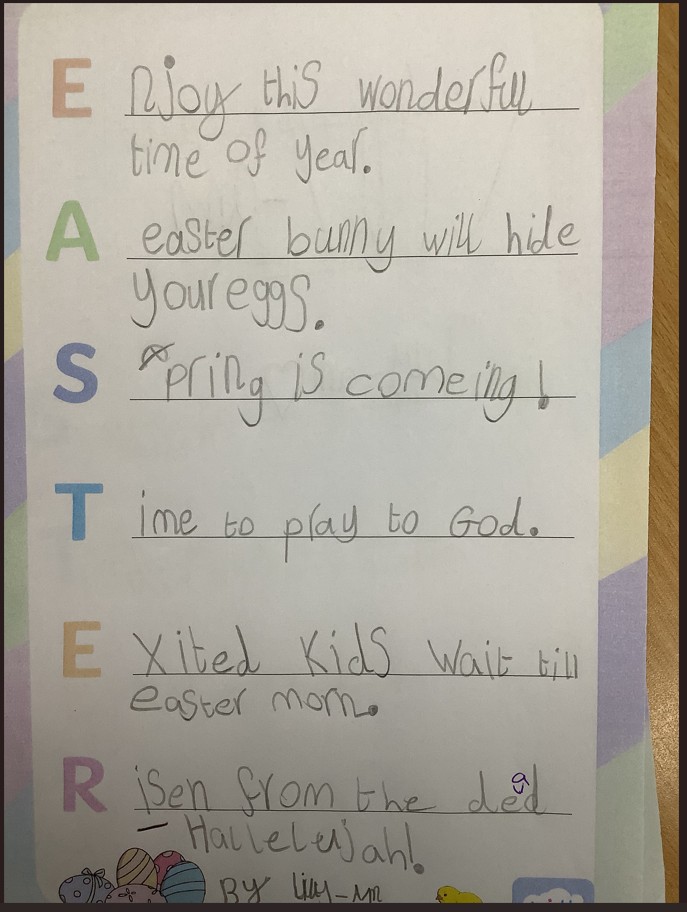 E njoy this wonderful
time of year.
A easter bunny will hide
your eggs.
S pring is comeing!
T ime to play to God.
E xited Kids wait till
easter morn.
R isen from the dead
- Hallelujah!
By